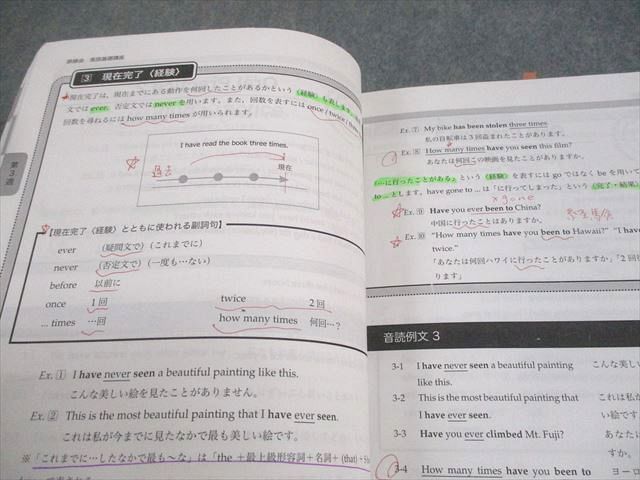 鉄緑会 英語基礎講座
第3週
3 現在完了〈経験〉
現在完了は、現在までにある動作を何回したことがあるかという〈経験〉も表します。
文では ever、否定文では never を用います。また、回数を表すには once / twice / three
回数を尋ねるには how many times が用いられます。
I have read the book three times.
過去
現在
【現在完了〈経験〉とともに使われる副詞句】
ever (疑問文で)(これまでに)
never (否定文で)(一度も…ない)
before 以前に
once 1回 twice 2回
... times …回 how many times 何回…?
Ex. ① I have never seen a beautiful painting like this.
こんな美しい絵を見たことがありません。
Ex. ② This is the most beautiful painting that I have ever seen.
これは私が今までに見たなかで最も美しい絵です。
※「これまでに…したなかで最も〜な」は「the +最上級形容詞+名詞+ (that) + S
Ex. ⑦ My bike has been stolen three times.
私の自転車は3回盗まれたことがあります。
Ex. ⑧ How many times have you seen this film?
あなたは何回この映画を見たことがありますか。
「…に行ったことがある」という〈経験〉を表すには go ではなく be を用いて
to ... とします。have gone to ... は「…に行ってしまった」という〈完了・結果〉
×gone
Ex. ⑨ Have you ever been to China?
中国に行ったことはありますか。
Ex. ⑩ "How many times have you been to Hawaii?" "I have
twice."
「あなたは何回ハワイに行ったことがありますか」「2回
ります」
音読例文 3
3-1 I have never seen a beautiful painting こんな美しい
like this.
3-2 This is the most beautiful painting that これは私が
I have ever seen. い絵です。
3-3 Have you ever climbed Mt. Fuji? あなたは
すか。
3-4 How many times have you been to ヨーロ